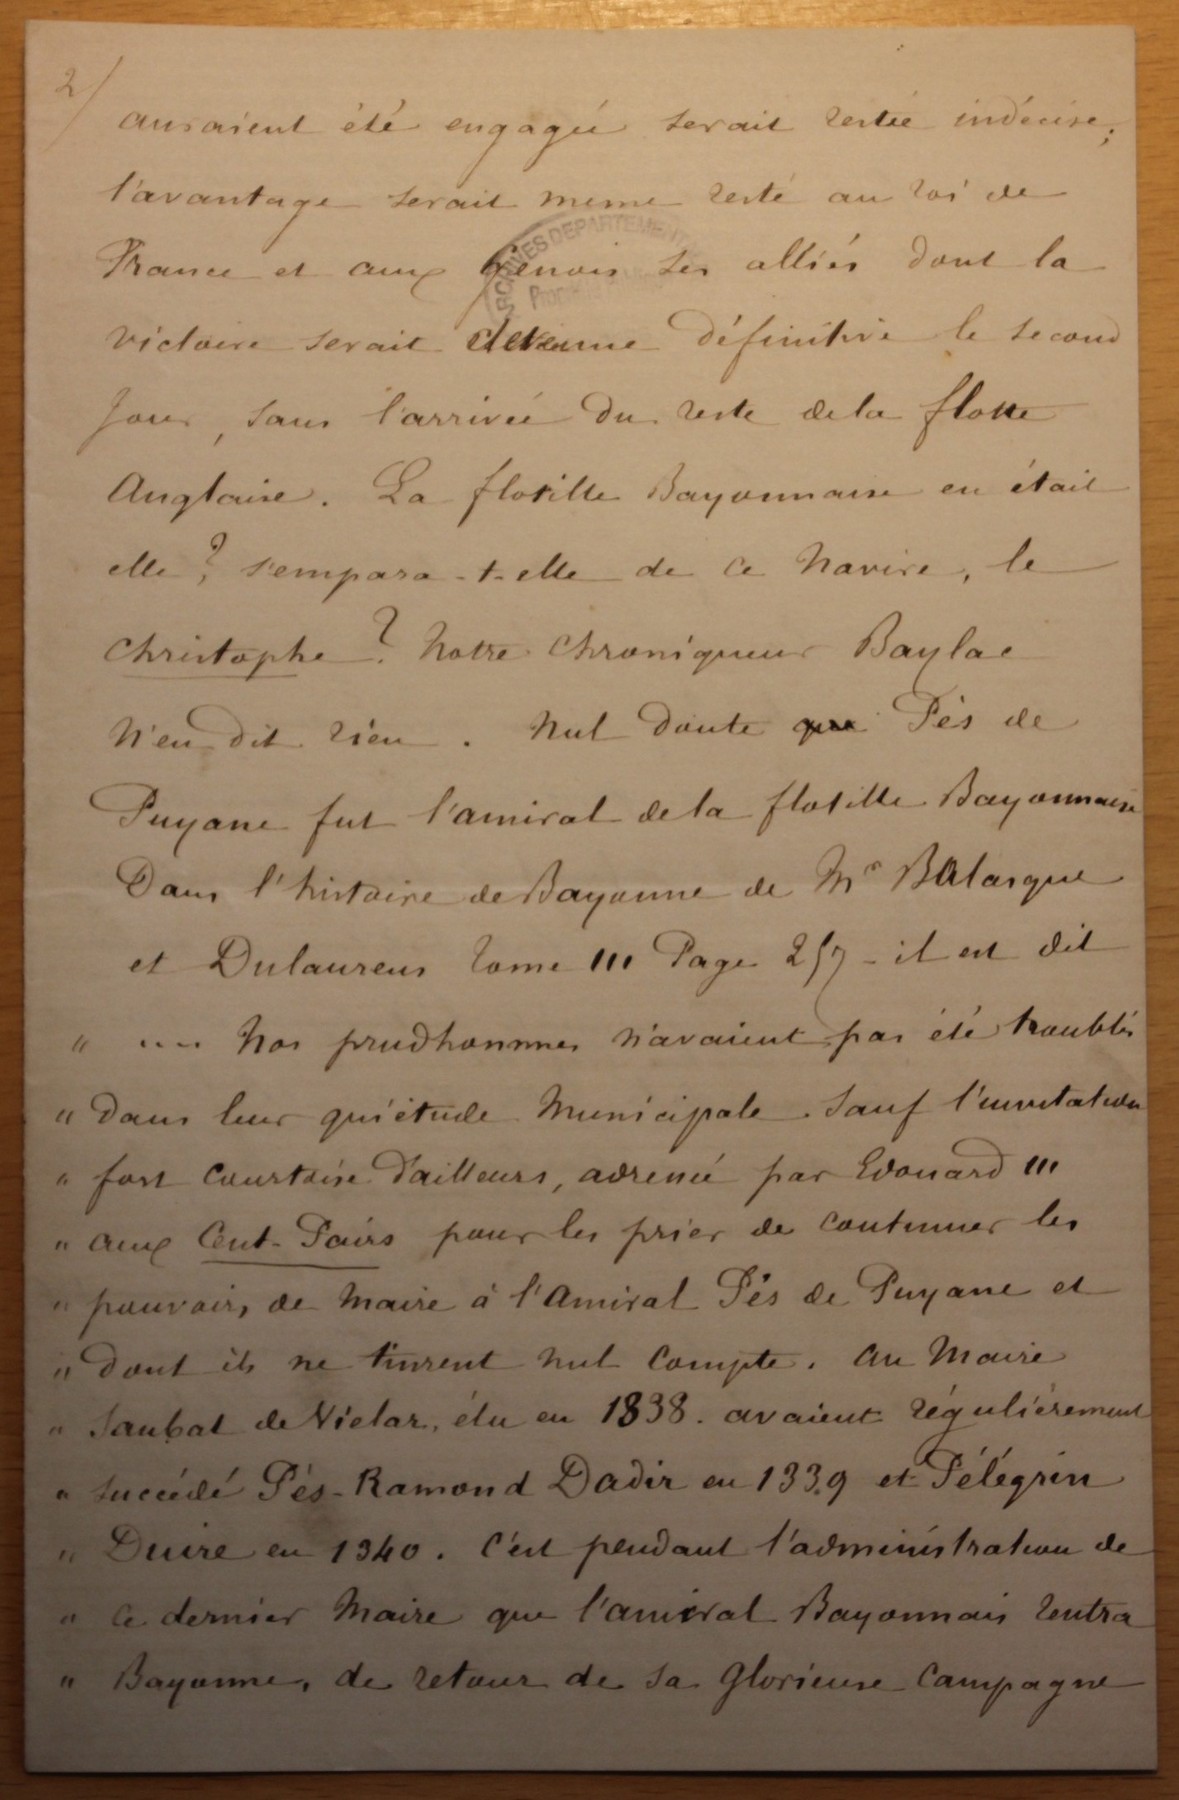 2/
auraient été engagée serait restée indécise;
l'avantage serait meme resté au roi de
France et aux Génois ses alliés dont la
ARCHIVES DEPARTEMENT
victoire serait devenue définitive le second
jour, sans l'arrivée du reste de la flotte
Anglaise. La flotille Bayonnaise en était
elle? s'empara-t-elle de ce navire, le
christophe? Notre chroniqueur Baylac
n'en dit rien. Nul doute que Pés de
Puyane fut l'amiral de la flotille Bayonnaise
Dans l'histoire de Bayonne de Mr Balasque
et Dulaurens tome III Page 257 - il est dit
" .... Nos prudhommes n'avaient pas été troublés
" dans leur quiétude Municipale. Sauf l'invitation
" fort courtoise d'ailleurs, adressée par Edouard III
" aux Cent-Pairs pour les prier de continuer les
" pouvoirs de Maire à l'Amiral Pés de Puyane et
" dont ils ne tinrent nul compte. Au Maire
" Saubat de Vielar, élu en 1838. avaient régulièrement
" succédé Pés-Ramond Dadir en 1339 et Pélégrin
" Duire en 1340. C'est pendant l'administration de
" ce dernier Maire que l'amiral Bayonnais rentra
" Bayonne, de retour de sa glorieuse campagne